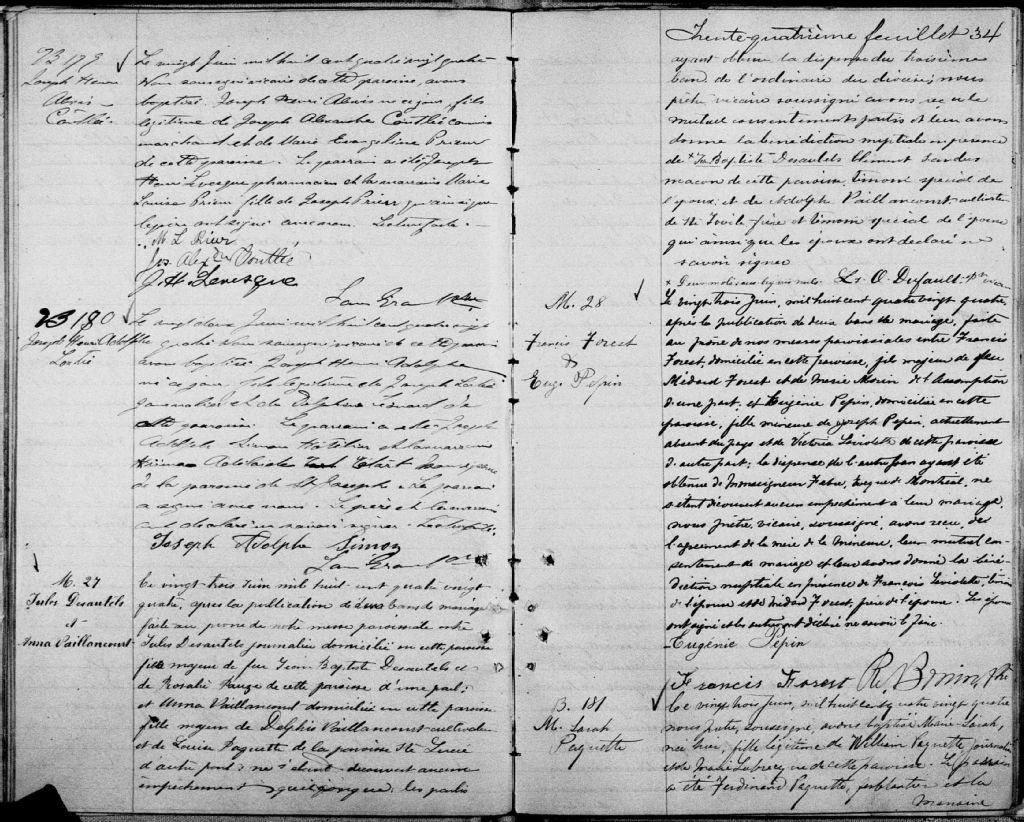 B 179
Joseph Henri
Alexis
Couthé.
Le vingt Juin mil huit cent quatre vingt quatre
Nous soussigné vicaire de cette paroisse, avons
baptisé Joseph Henri Alexis né ce jour, fils
légitime de Joseph Alexandre Couthé commis
marchand et de Marie Evangeline Prieur
de cette paroisse. Le parrain a été Joseph
Henri Levesque pharmacien et la marraine Marie
Louise Prieur fille de Joseph Prieur qui ainsi que
le père ont signé avec nous. Lecture faite.
M. L. Prieur
Jos. Alex Couthé
J. H. Levesque
B 180
Joseph Henri Adolphe
Le vingt deux Juin mil huit cent quatre vingt
quatre Nous soussigné vicaire de cette paroisse
avons baptisé Joseph Henri Adolphe
né ce jour, fils légitime de Joseph
journalier et de Delphine Simard de
cette paroisse. Le parrain a été Joseph
Adolphe Simon Hôtelier et la marraine
Adelaide
de la paroisse de St Joseph. Le parrain
a signé avec nous. Le père et la marraine
ont déclaré ne savoir signer. Lecture faite.
Joseph Adolphe Simon
M. 27
Jules Desautels
et
Anna Vaillancourt
Ce vingt-trois Juin mil huit-cent quatre vingt
quatre, après la publication de deux bans de mariage
faite au prône de notre messe paroissiale entre
Jules Desautels journalier domicilié en cette paroisse
fils majeur de feu Jean Baptiste Desautels et
de Rosalie de cette paroisse d'une part;
et Anna Vaillancourt domiciliée en cette paroisse
fille majeure de Delphis Vaillancourt cultivateur
et de Louise Paquette de la paroisse Ste Lucie
d'autre part; ne s'étant découvert aucun
empêchement quelconque, les parties
Trente-quatrième feuillet 34
ayant obtenu la dispense du troisième
ban de l'ordinaire du diocèse; nous
prêtre vicaire soussigné avons reçu le
mutuel consentement parties et leur avons
donné la bénédiction nuptiale en présence
de + Jn. Baptiste Desautels
maçon de cette paroisse témoin spécial de
l'époux; et de Adolph Vaillancourt cultivateur
de Ste Lucie frère et témoin spécial de l'épouse
qui ainsi que les époux ont déclaré ne
savoir signer.
+ Deux mots nuls. Ls. O. Dufault ptr vicaire
M. 28
Francis Forest
&
Eugé. Pepin
Le vingt trois Juin, mil huit cent quatre vingt quatre,
après la publication de deux bans de mariage, faite
au prône de nos messes paroissiales entre Francis
Forest, domicilié en cette paroisse, fils majeur de feu
Médard Forest et de Marie Morin de l'Assomption
d'une part; et Eugénie Pepin, domiciliée en cette
paroisse, fille mineure de Joseph Pepin, actuellement
absent du pays et de Victoire Laviolette de cette paroisse
d'autre part; la dispense de l'autre ban ayant été
obtenue de Monseigneur Fabre, Evêque de Montréal, ne
s'étant découvert aucun empêchement à leur mariage,
nous prêtre, vicaire, soussigné, avons reçu, de
l'agrément de la mère de la mineure, leur mutuel con-
sentement de mariage et leur avons donné la béné-
diction nuptiale en présence de François Laviolette, témoin
de l'épouse et de Médard Forest, frère de l'époux. Les époux
ont signé et les autres ont déclaré ne savoir le faire.
Eugénie Pepin
Francis Forest R. Bonin, Ptre
B. 181
M. Sarah
Paquette
Ce vingt trois Juin, mil huit cent quatre vingt quatre
nous prêtre, soussigné, avons baptisé Marie Sarah,
née hier, fille légitime de William Paquette, journalier
et de Marie de cette paroisse. Le parrain
a été Ferdinand Paquette, ferblantier et la
marraine